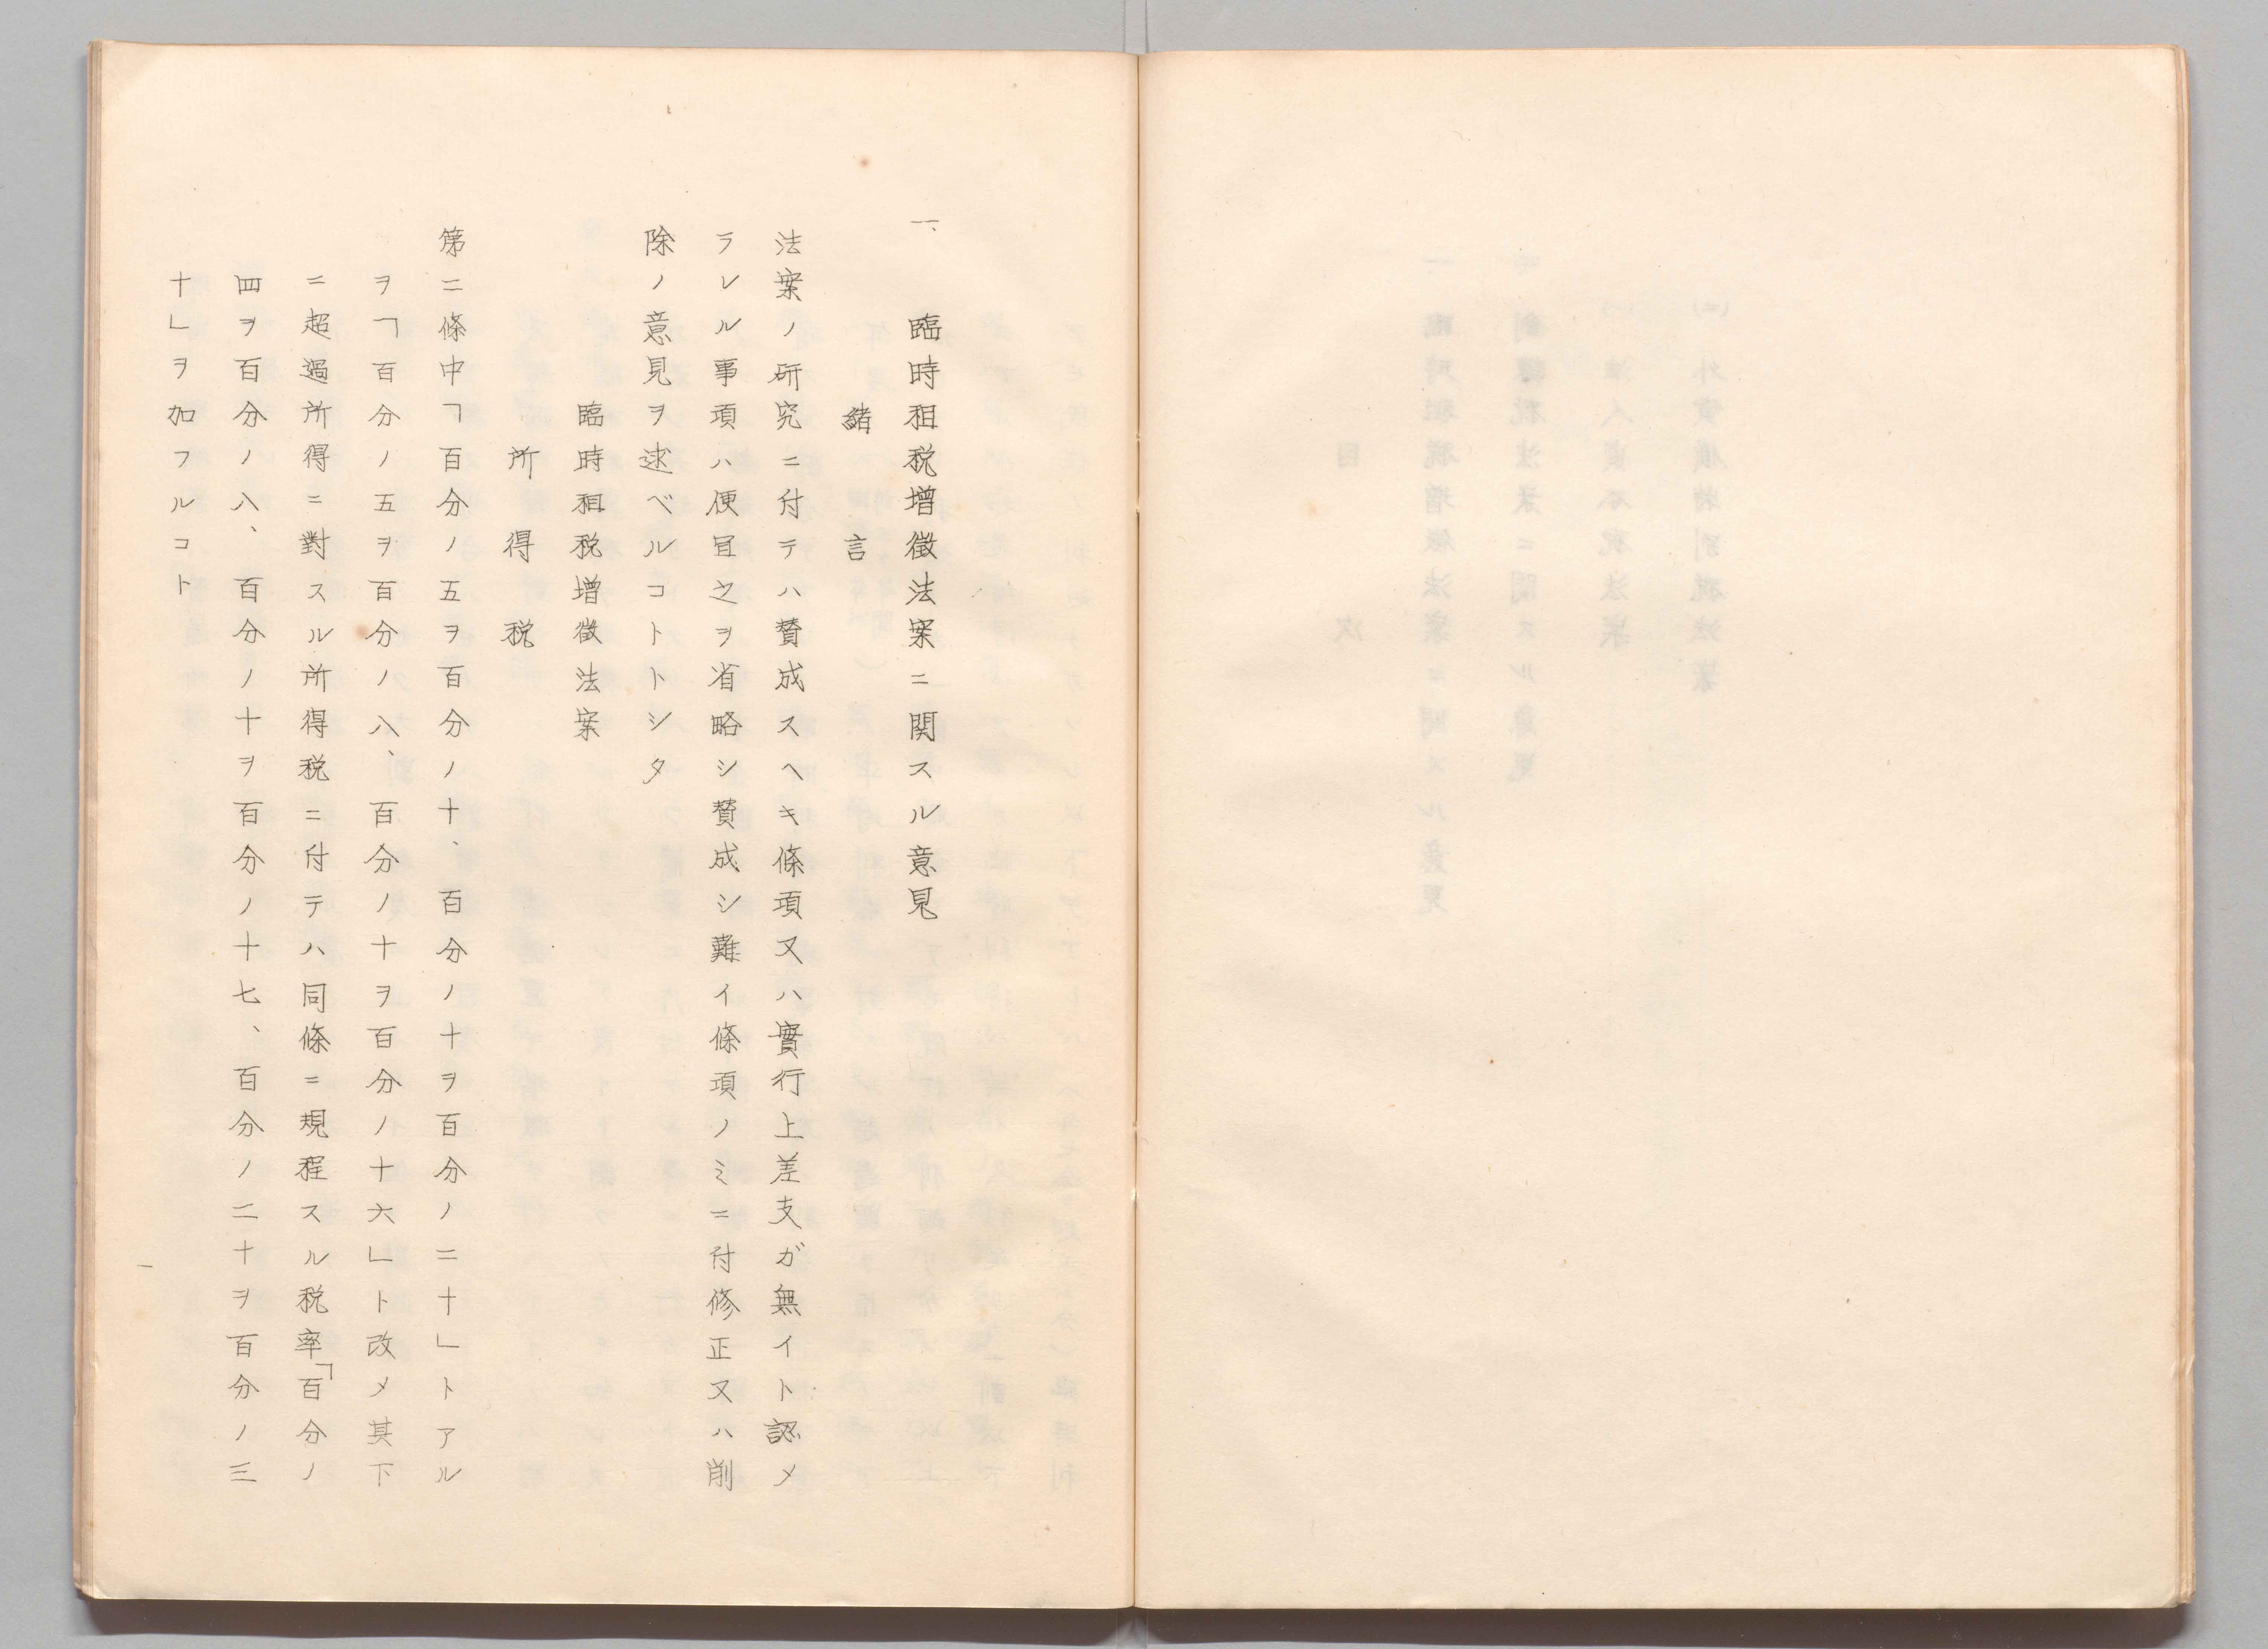 一、臨時租税増徴法案ニ関スル意見
緒言
法案ノ研究ニ付テハ賛成スヘキ條項又ハ實行上差支ガ無イト認メ
ラレル事項ハ便冝之ヲ省略シ賛成シ難イ條項ノミニ付修正又ハ削
除ノ意見ヲ述ベルコトトシタ
臨時租税増徴法案
所得税
第二條中「百分ノ五ヲ百分ノ十、百分ノ十ヲ百分ノ二十」トアル
ヲ「百分ノ五ヲ百分ノ八、百分ノ十ヲ百分ノ十六」ト改メ其下
ニ超過所得ニ對スル所得税ニ付テハ同條ニ規程スル税率「百分ノ
四ヲ百分ノ八、百分ノ十ヲ百分ノ十七、百分ノ二十ヲ百分ノ三
十」ヲ加フルコト
一